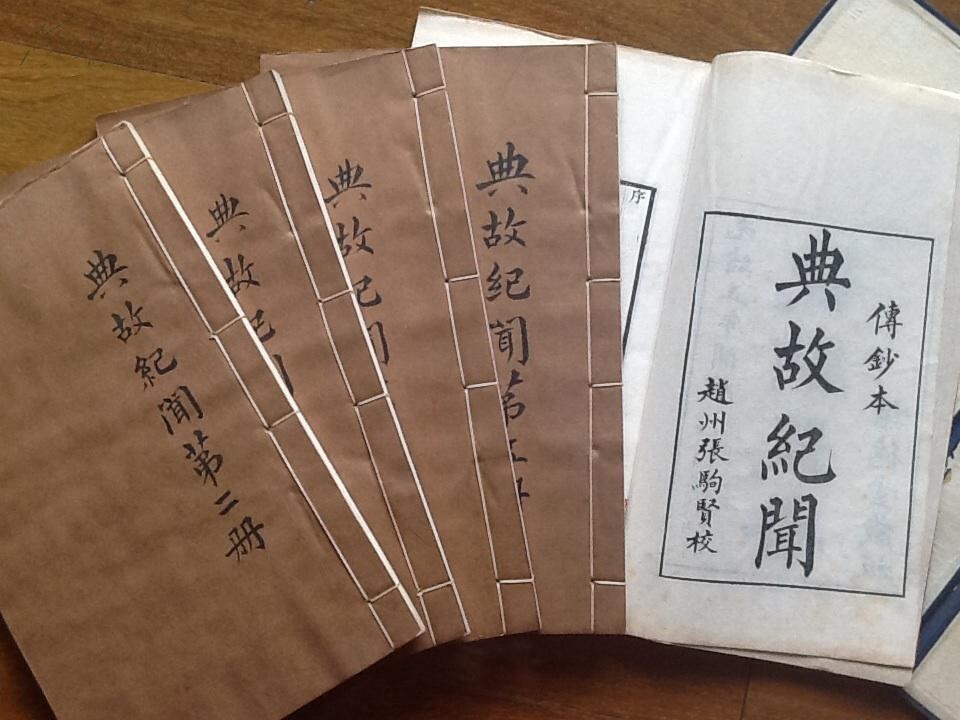 傳鈔本
典故紀聞
趙州張駒賢校
序
典故紀聞苐
典故紀聞
典故紀
典故紀聞苐二册